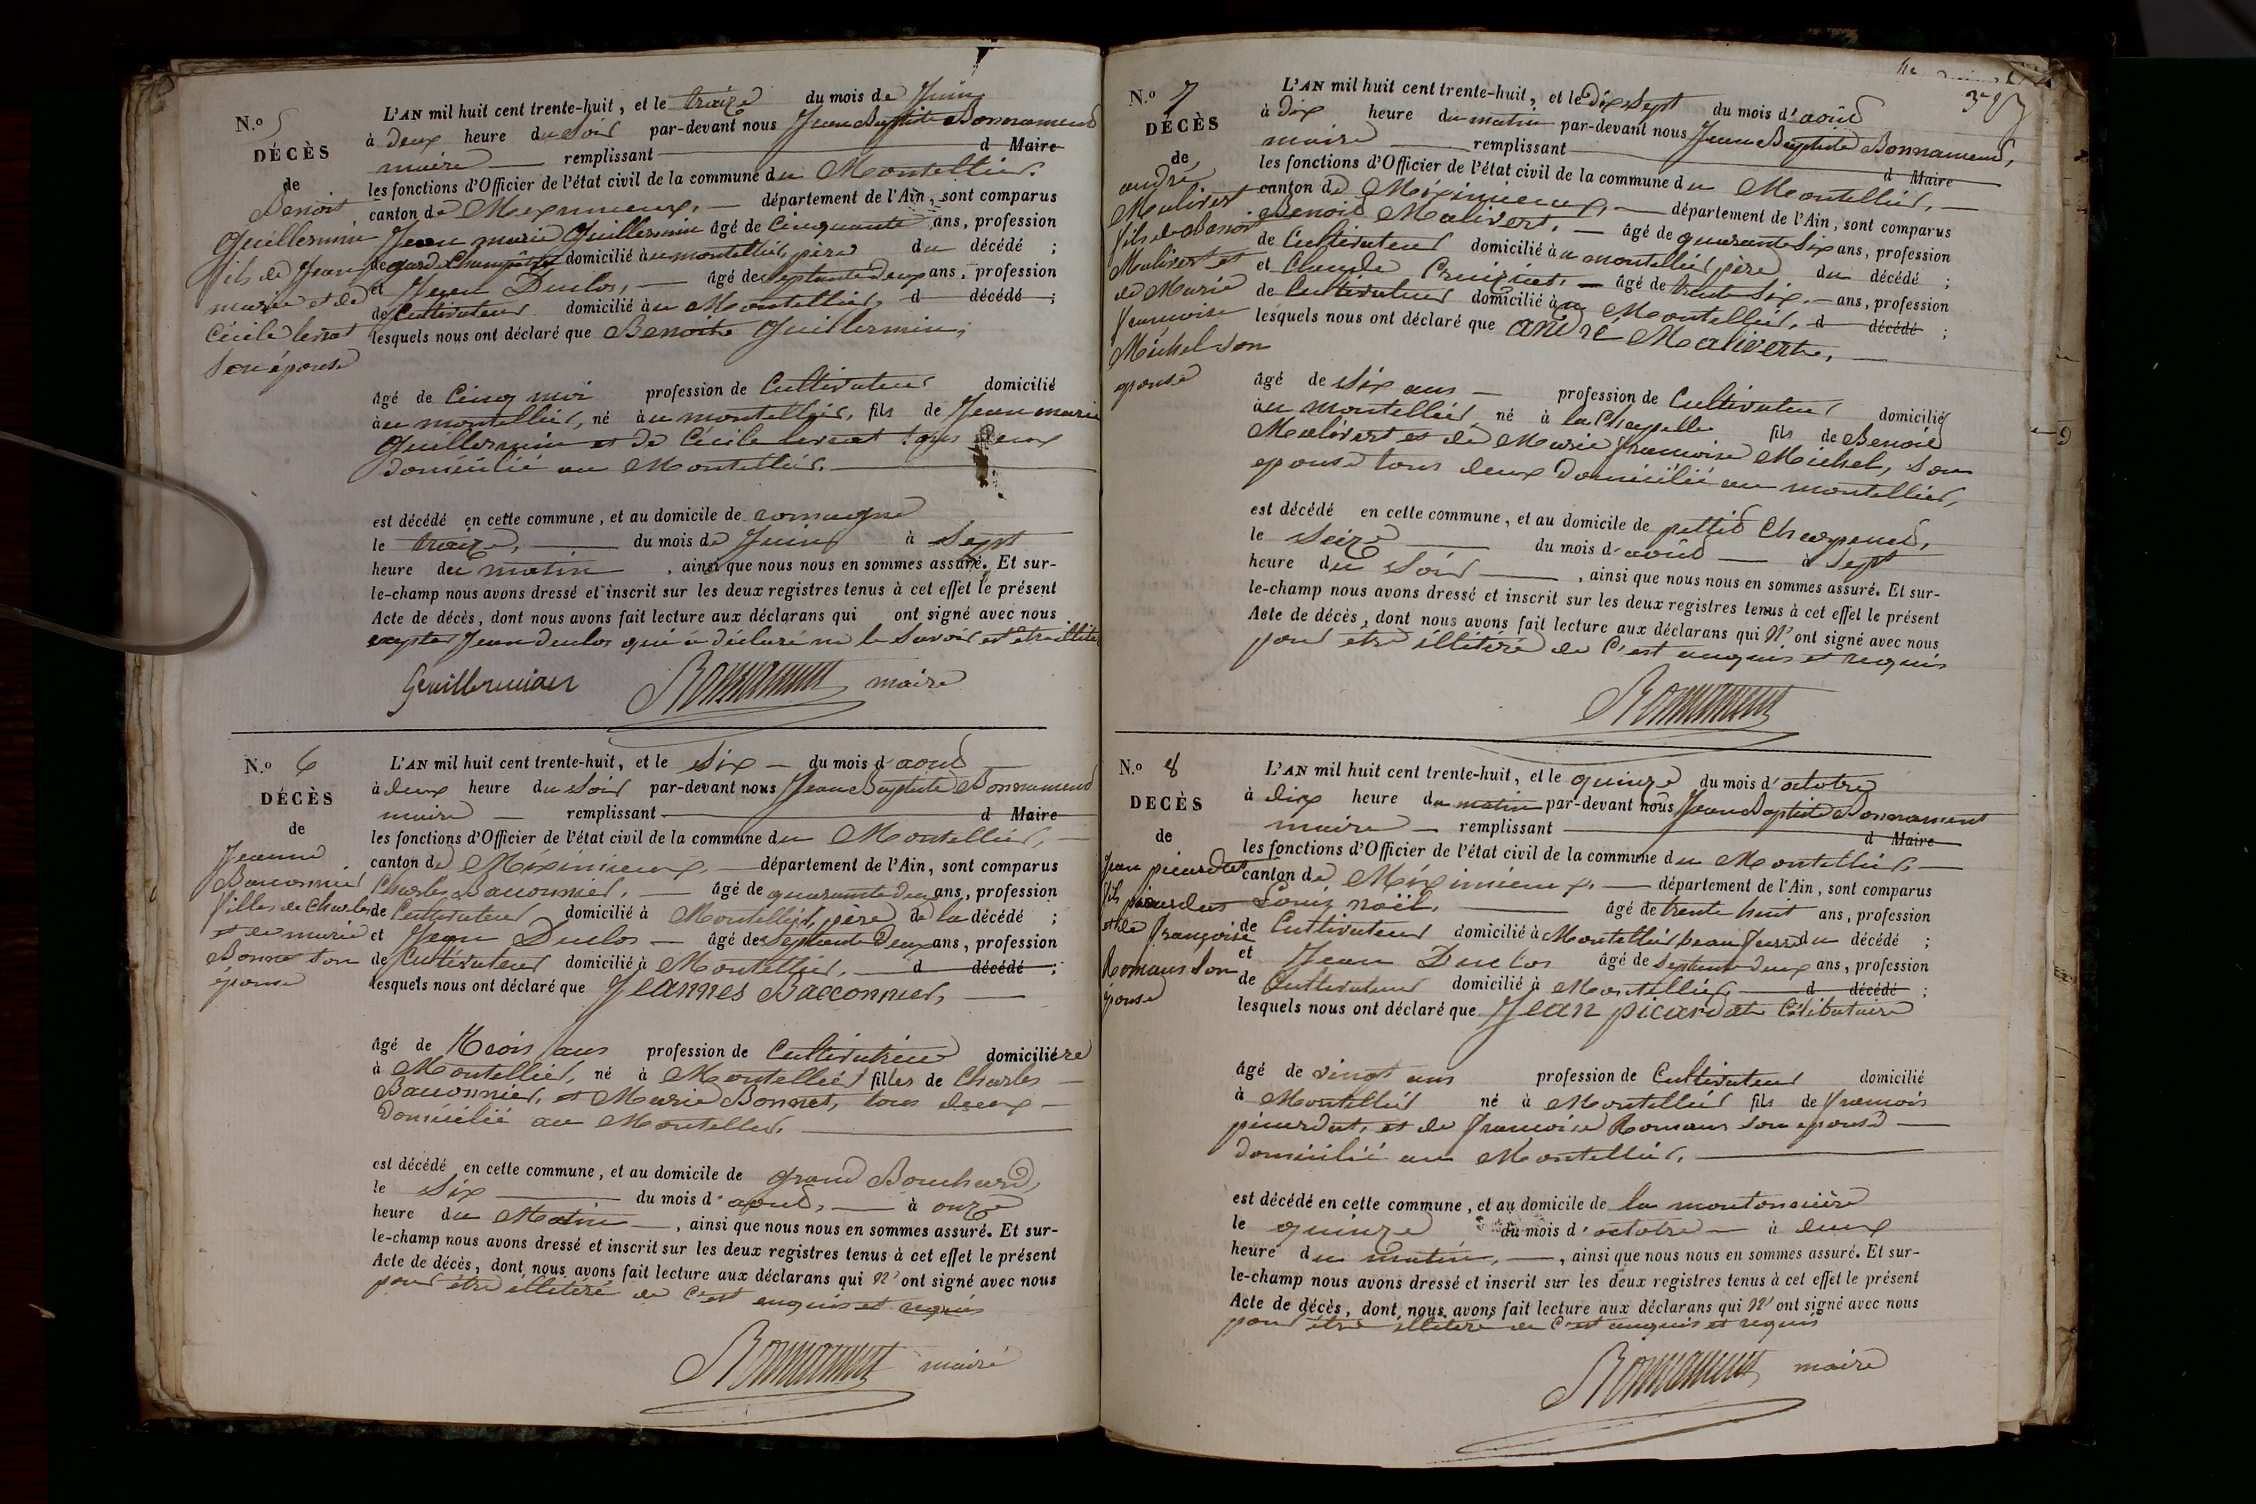 N.o 5
DÉCÈS
de
Benoit
Guillermin
fils de Jean
marie et de
Cécile
son épouse
L'AN mil huit cent trente-huit, et le treize du mois de Juin
à deux heure du soir par-devant nous Jean Baptiste Bonnamend
maire remplissant d Maire
les fonctions d'Officier de l'état civil de la commune du Montellier.
canton de Meximieux, département de l'Ain, sont comparus
Jean marie Guillermin âgé de Cinquante ans, profession
de garde Champêtre domicilié au montellier, père du décédé ;
et Jean Duclos, âgé de septante deux ans, profession
de Cultivateur domicilié au Montellier, d décédé ;
lesquels nous ont déclaré que Benoite Guillermin,
âgé de Cinq moi profession de Cultivateur domicilié
au montellier, né au montellier, fils de Jean marie
Guillermin et de Cécile tous deux
domicilié au Montellier.
est décédé en cette commune, et au domicile de romagne
le treize, du mois de Juin à sept
heure du matin, ainsi que nous nous en sommes assuré. Et sur-
le-champ nous avons dressé et inscrit sur les deux registres tenus à cet effet le présent
Acte de décès, dont nous avons fait lecture aux déclarans qui ont signé avec nous
exepter Jean Duclos qui à déclaré ne le savoir
Guillermin Bonnamend maire
N.o 6
DÉCÈS
de
Jeanne
Baconnier
filles de Charles
et de marie
Bonnet son
épouse
L'AN mil huit cent trente-huit, et le six du mois d'aout
à deux heure du soir par-devant nous Jean Baptiste Bonnamend
maire remplissant d Maire
les fonctions d'Officier de l'état civil de la commune du Montellier,
canton de Méximieux, département de l'Ain, sont comparus
Charles Baconnier, âgé de quarante deux ans, profession
de Cultivateur domicilié à Montellier, père de la décédé ;
et Jean Duclos âgé de septante deux ans, profession
de Cultivateur domicilié à Montellier, d décédé ;
lesquels nous ont déclaré que Jeannes Bacconnier,
âgé de trois ans profession de Cultivatrice domiciliére
à Montellier, né à Montellier filles de Charles
Baconnier, et Marie Bonnet, tous deux
domicilié au Montellier.
est décédé en cette commune, et au domicile de grand Bouchard,
le six du mois d'aout, à onze
heure du Matin, ainsi que nous nous en sommes assuré. Et sur-
le-champ nous avons dressé et inscrit sur les deux registres tenus à cet effet le présent
Acte de décès, dont nous avons fait lecture aux déclarans qui n'ont signé avec nous
pour être illétéré de c'est enquis et requis
Bonnamend maire
N.o 7
DÉCÈS
de
andré
Malivert
fils de Benoit
Malivert et
de Marie
francoise
Michel son
epouse
L'AN mil huit cent trente-huit, et le dix sept du mois d'août
à dix heure du matin par-devant nous Jean Baptiste Bonnamend,
maire remplissant d Maire
les fonctions d'Officier de l'état civil de la commune du Montellier,
canton de Méximieux, département de l'Ain, sont comparus
Benoit Malivert, âgé de quarante six ans, profession
de Cultivateur domicilié au montellier père du décédé ;
et Claude âgé de trente six ans, profession
de Cultivateur domicilié au Montellier, d décédé ;
lesquels nous ont déclaré que andré Maliverte,
âgé de six ans profession de Cultivateur domicilié
au montellier, né à la Chapelle fils de Benoit
Malivert et de Marie francoise Michel, son
epouse tous deux domicilié au montellier,
est décédé en cette commune, et au domicile de pettit Charpenel,
le seize du mois d'août à sept
heure du soir, ainsi que nous nous en sommes assuré. Et sur-
le-champ nous avons dressé et inscrit sur les deux registres tenus à cet effet le présent
Acte de décès, dont nous avons fait lecture aux déclarans qui n'ont signé avec nous
pour etre illétéré de c'est enquis et requis
Bonnamend
N.o 8
DECÈS
de
Jean picardat
fils
et de françoise
Romans son
épouse
L'AN mil huit cent trente-huit, et le quinze du mois d'octobre
à dix heure du matin par-devant nous Jean Baptiste Bonnament
maire remplissant d Maire
les fonctions d'Officier de l'état civil de la commune du Montellier,
canton de Méximieux, département de l'Ain, sont comparus
Louis noël, âgé de trente huit ans, profession
de Cultivateur domicilié à Montellier, beau frere du décédé ;
et Jean Duclos âgé de septante deux ans, profession
de Cultivateur domicilié à Montellier, d décédé ;
lesquels nous ont déclaré que Jean picardate Célibataire
âgé de vingt ans profession de Cultivateur domicilié
à Montellier né à Montellier fils de francois
picardat, et de francoise Romans son epouse
domicilié au Montellier.
est décédé en cette commune, et au domicile de la montonnière
le quinze du mois d'octobre à deux
heure du matin, ainsi que nous nous en sommes assuré. Et sur-
le-champ nous avons dressé et inscrit sur les deux registres tenus à cet effet le présent
Acte de décès, dont nous avons fait lecture aux déclarans qui n'ont signé avec nous
pour être illétéré de c'est enquis et requis
Bonnamend maire